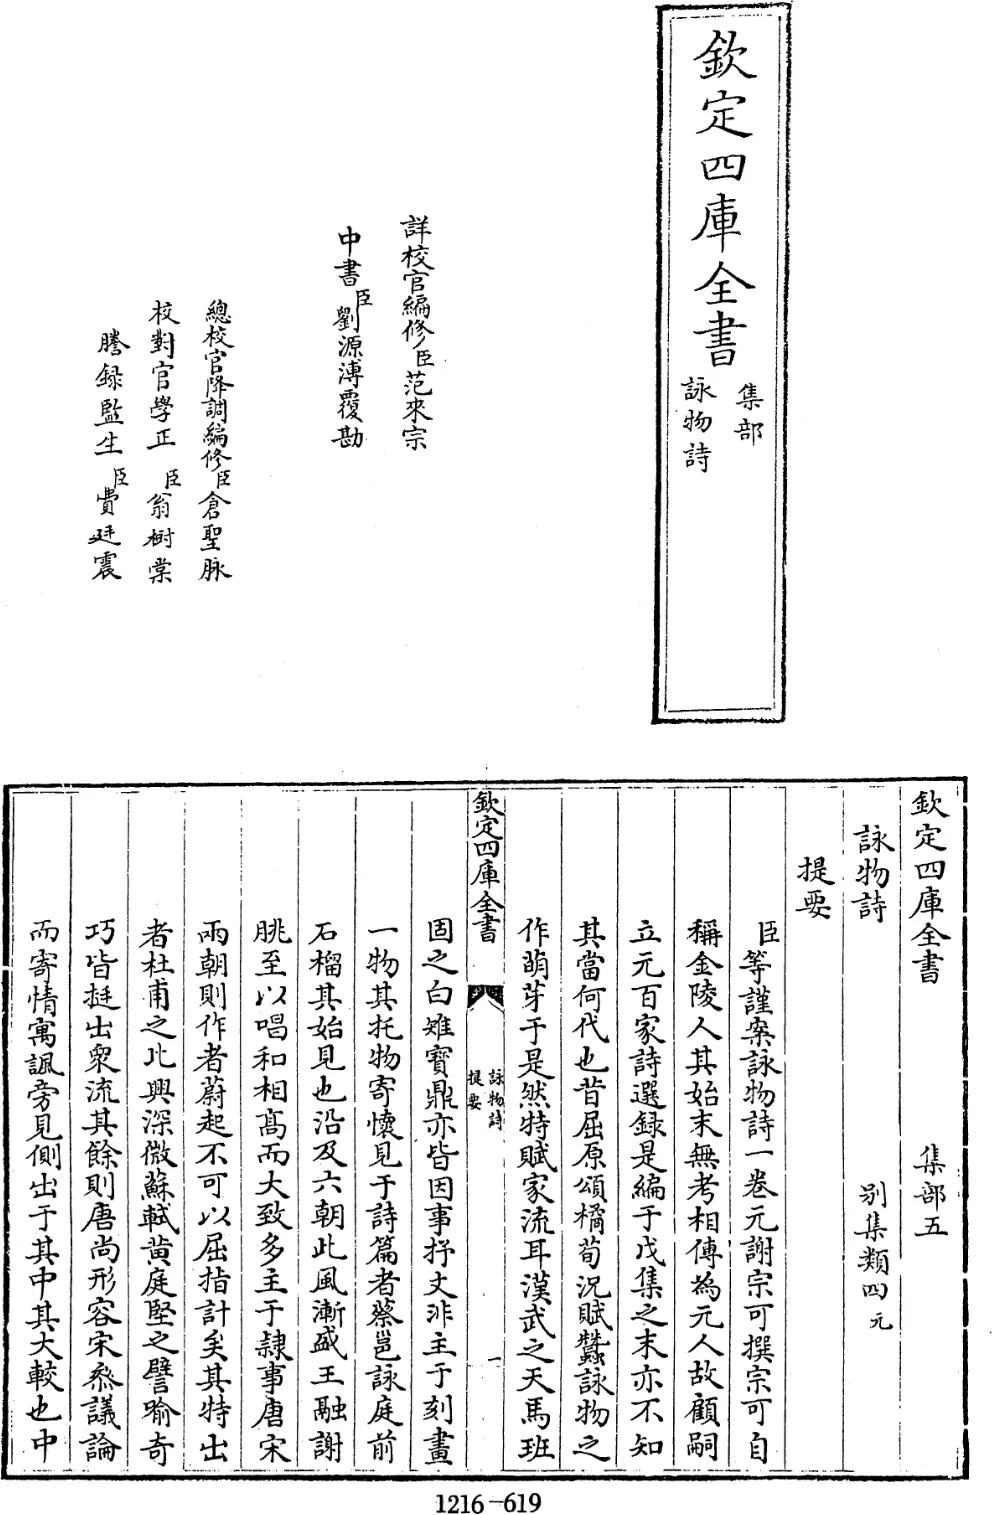 欽定四庫全書
集部
詠物詩
詳校官編修臣范來宗
中書臣劉源溥覆勘
總校官降調編修臣倉聖脉
校對官學正臣翁樹棠
謄録監生臣費廷震
欽定四庫全書 集部五
詠物詩 别集類四元
提要
臣等謹案詠物詩一卷元謝宗可撰宗可自
稱金陵人其始末無考相傳為元人故顧嗣
立元百家詩選録是編于戊集之末亦不知
其當何代也昔屈原頌橘荀況賦蠶詠物之
作萌芽于是然特賦家流耳漢武之天馬班
欽定四庫全書
詠物詩
提要
一
固之白雉寶鼎亦皆因事抒文非主于刻畫
一物其托物寄懷見于詩篇者蔡邕詠庭前
石榴其始見也沿及六朝此風漸盛王融謝
朓至以唱和相高而大致多主于隸事唐宋
兩朝則作者蔚起不可以屈指計矣其特出
者杜甫之比興深微蘇軾黄庭堅之譬喻奇
巧皆挺出衆流其餘則唐尚形容宋參議論
而寄情寓諷旁見側出于其中其大較也中
1216-619